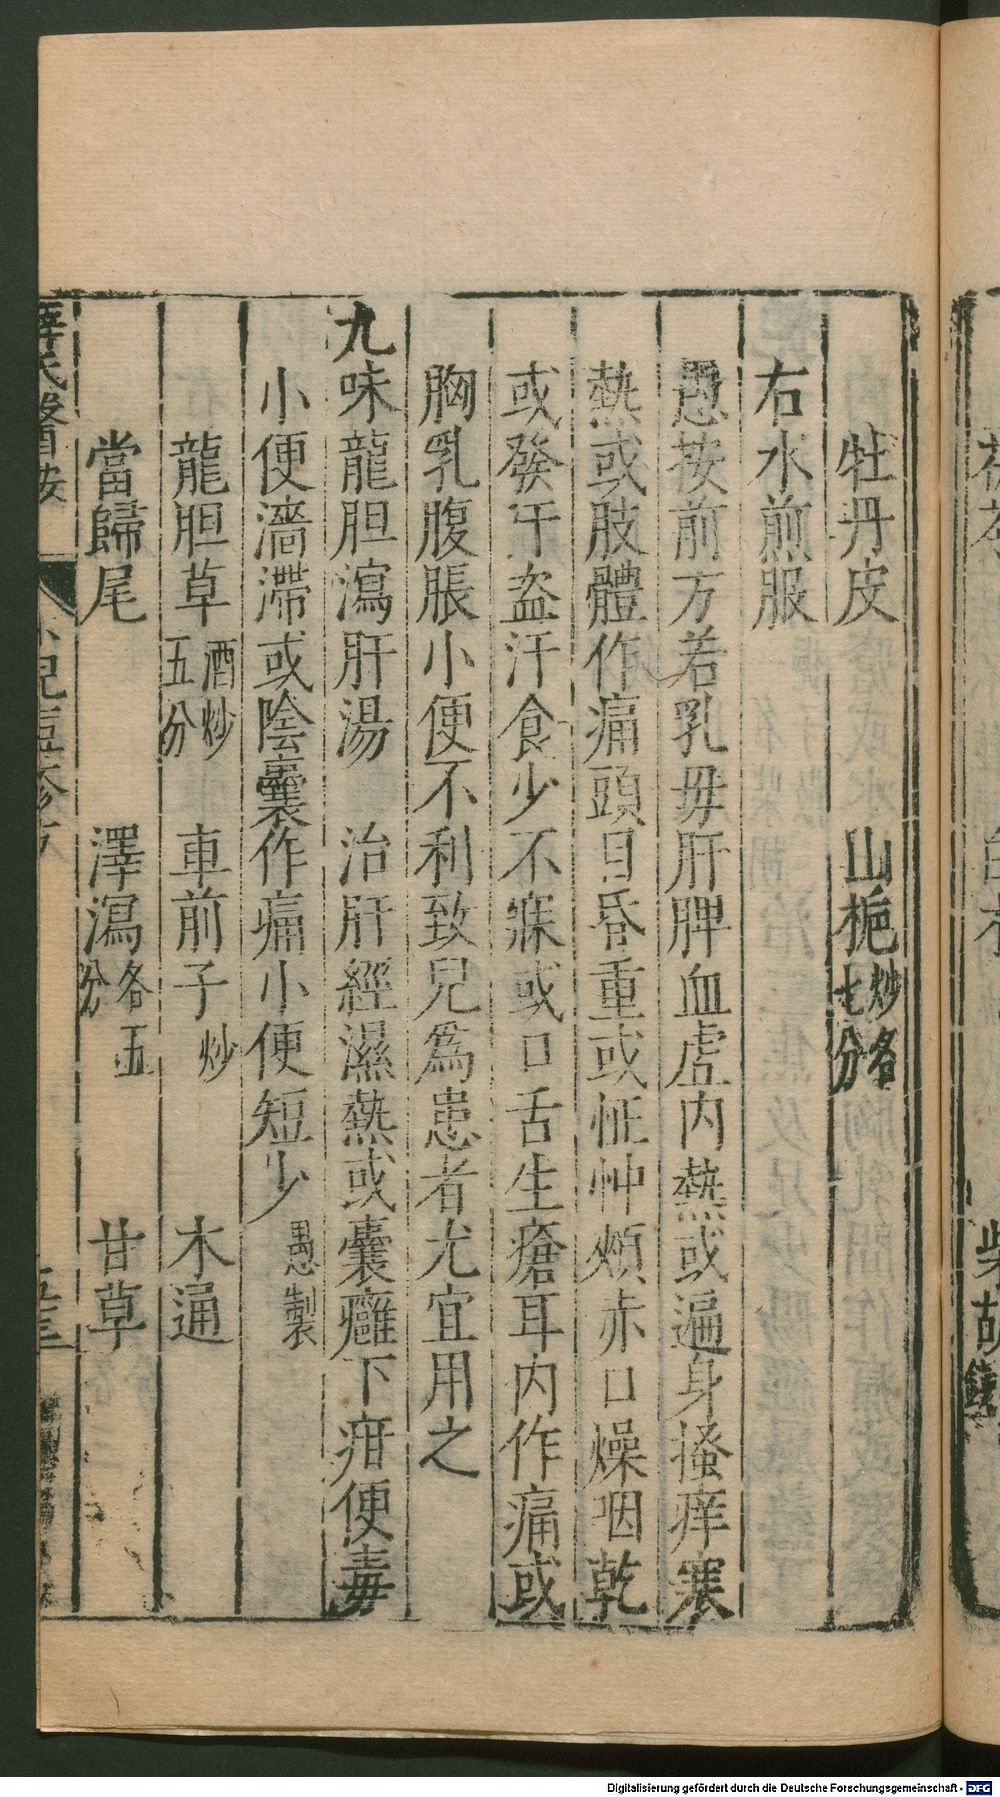 牡丹皮　山梔炒各七分
右水煎服
愚按前方若乳母肝脾血虛内熱或遍身搔痒寒
熱或肢體作痛頭目昏重或怔忡頰赤口燥咽乾
或發汗盜汗食少不寐或口舌生瘡耳内作痛或
胸乳腹脹小便不利致兒為患者尤宜用之
九味龍胆瀉肝湯　治肝經濕熱或囊癰下疳便毒
小便濇滯或陰囊作痛小便短少　愚製
龍胆草酒炒五分　車前子炒　木通
當歸尾　澤瀉各五分　甘草
薛氏醫按　小兒痘疹方
柴胡
Digitalisierung gefördert durch die Deutsche Forschungsgemeinschaft - DFG